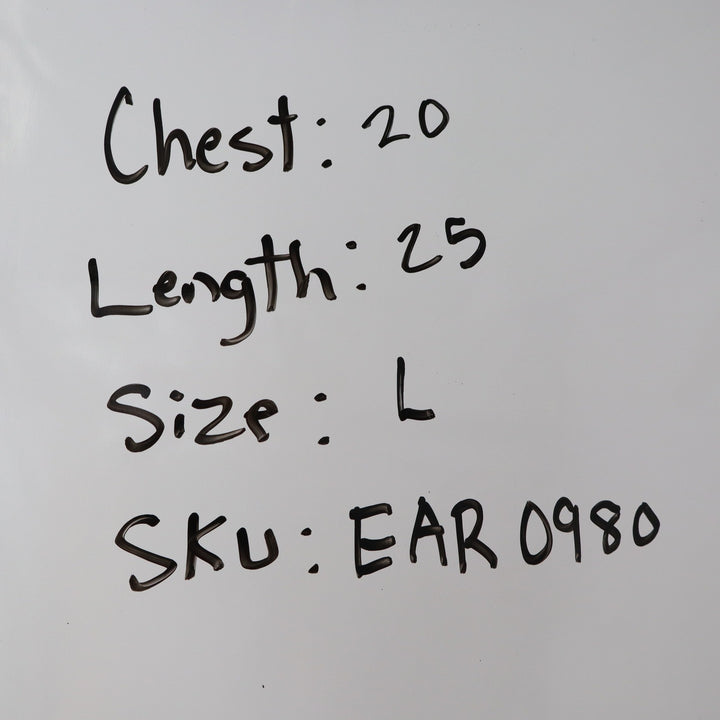 Chest: 20
Length: 25
Size: L
SKU: EAR 0980